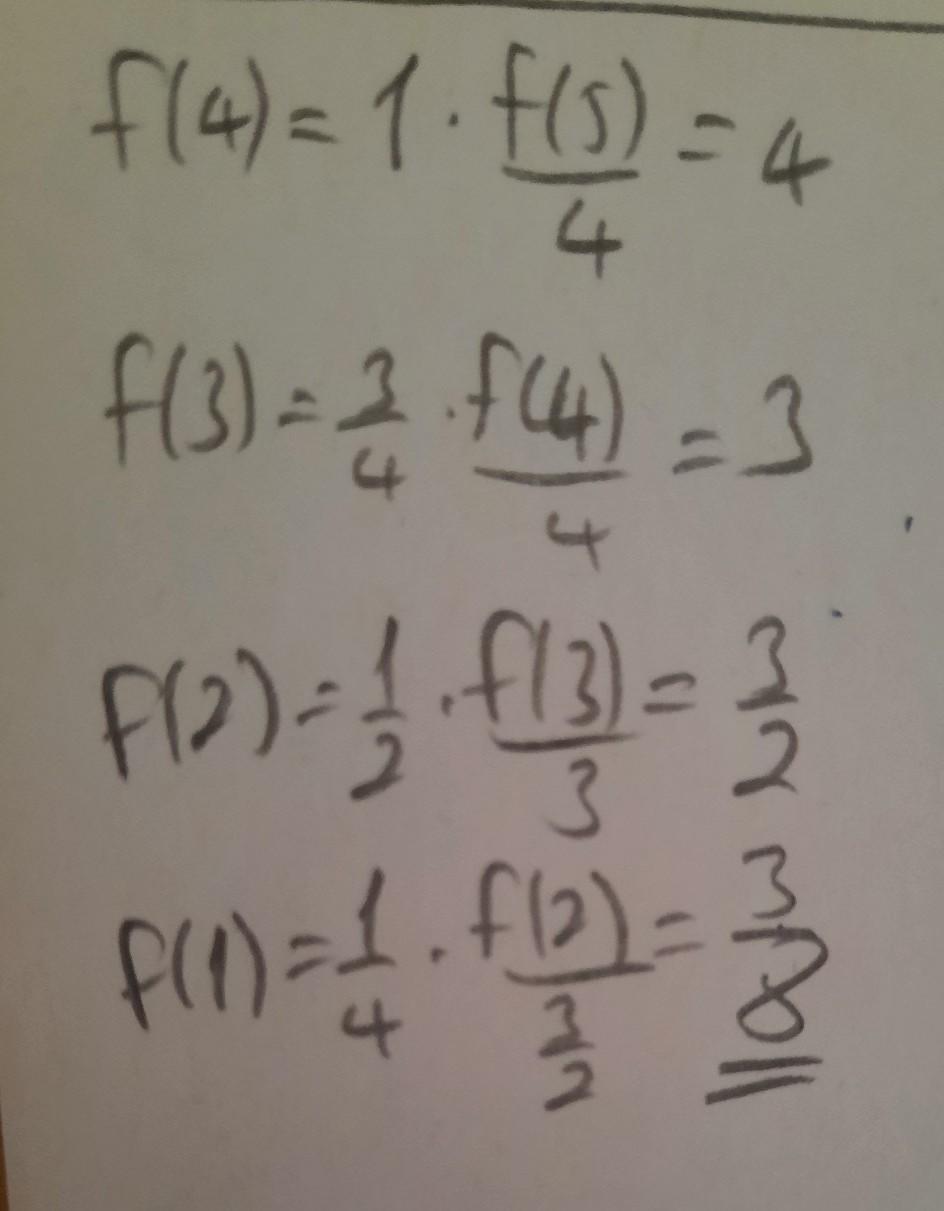 f(4) = 1 · f(5)/4 = 4
f(3) = 3/4 · f(4)/4 = 3
f(2) = 1/2 · f(3)/3 = 3/2
f(1) = 1/4 · f(2)/(3/2) = 3/8